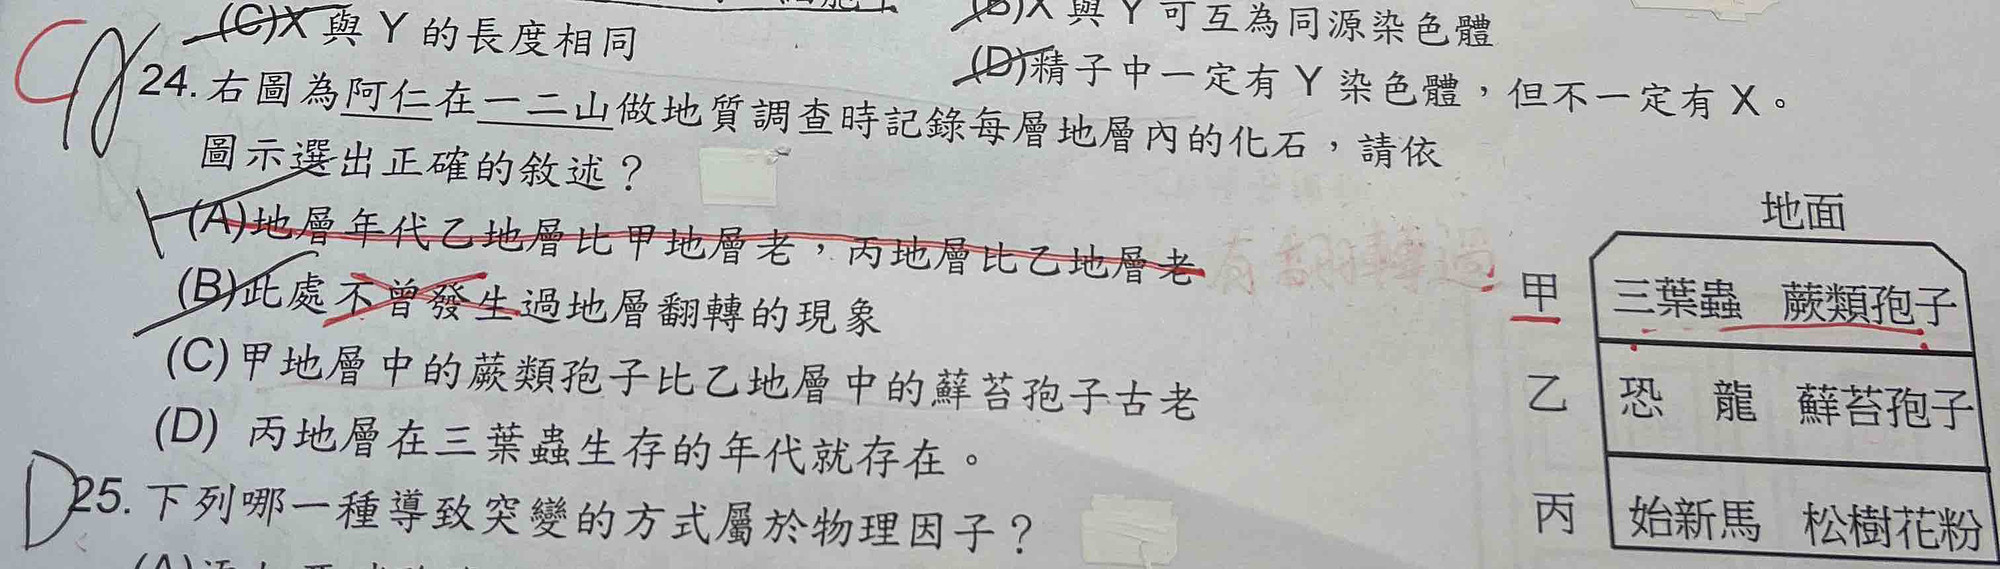 (C)X與Y的長度相同
(B)X與Y可互為同源染色體
(D)精子中一定有Y染色體，但不一定有X。
C
24.右圖為阿仁在一二山做地質調查時記錄每層地層內的化石，請依
圖示選出正確的敘述？
(A)地層年代乙地層比甲地層老，丙地層比乙地層老
有翻轉過
(B)此處不曾發生過地層翻轉的現象
(C)甲地層中的蕨類孢子比乙地層中的蘚苔孢子古老
(D) 丙地層在三葉蟲生存的年代就存在。
地面
甲 三葉蟲 蕨類孢子
乙 恐龍 蘚苔孢子
丙 始新馬 松樹花粉
D
25.下列哪一種導致突變的方式屬於物理因子？